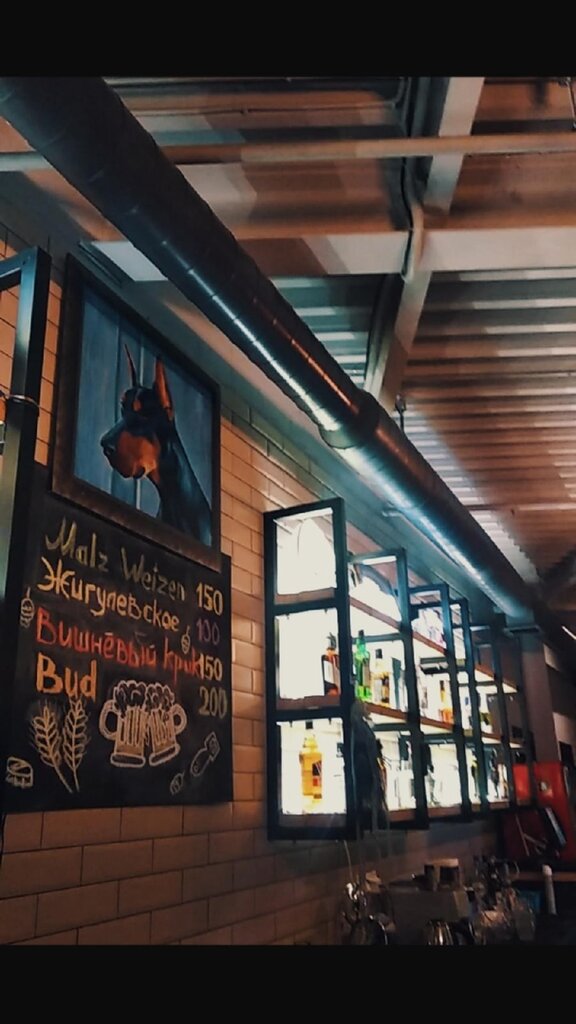 Malz Weizen 150
Жигулевское 100
Вишнёвый Крик 150
Bud 200